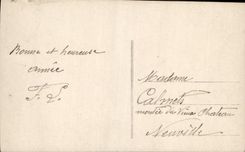 Bonne et heureuse
année
F. L.
Madame
Calmets
montée du Vieux Chateau
Neuville